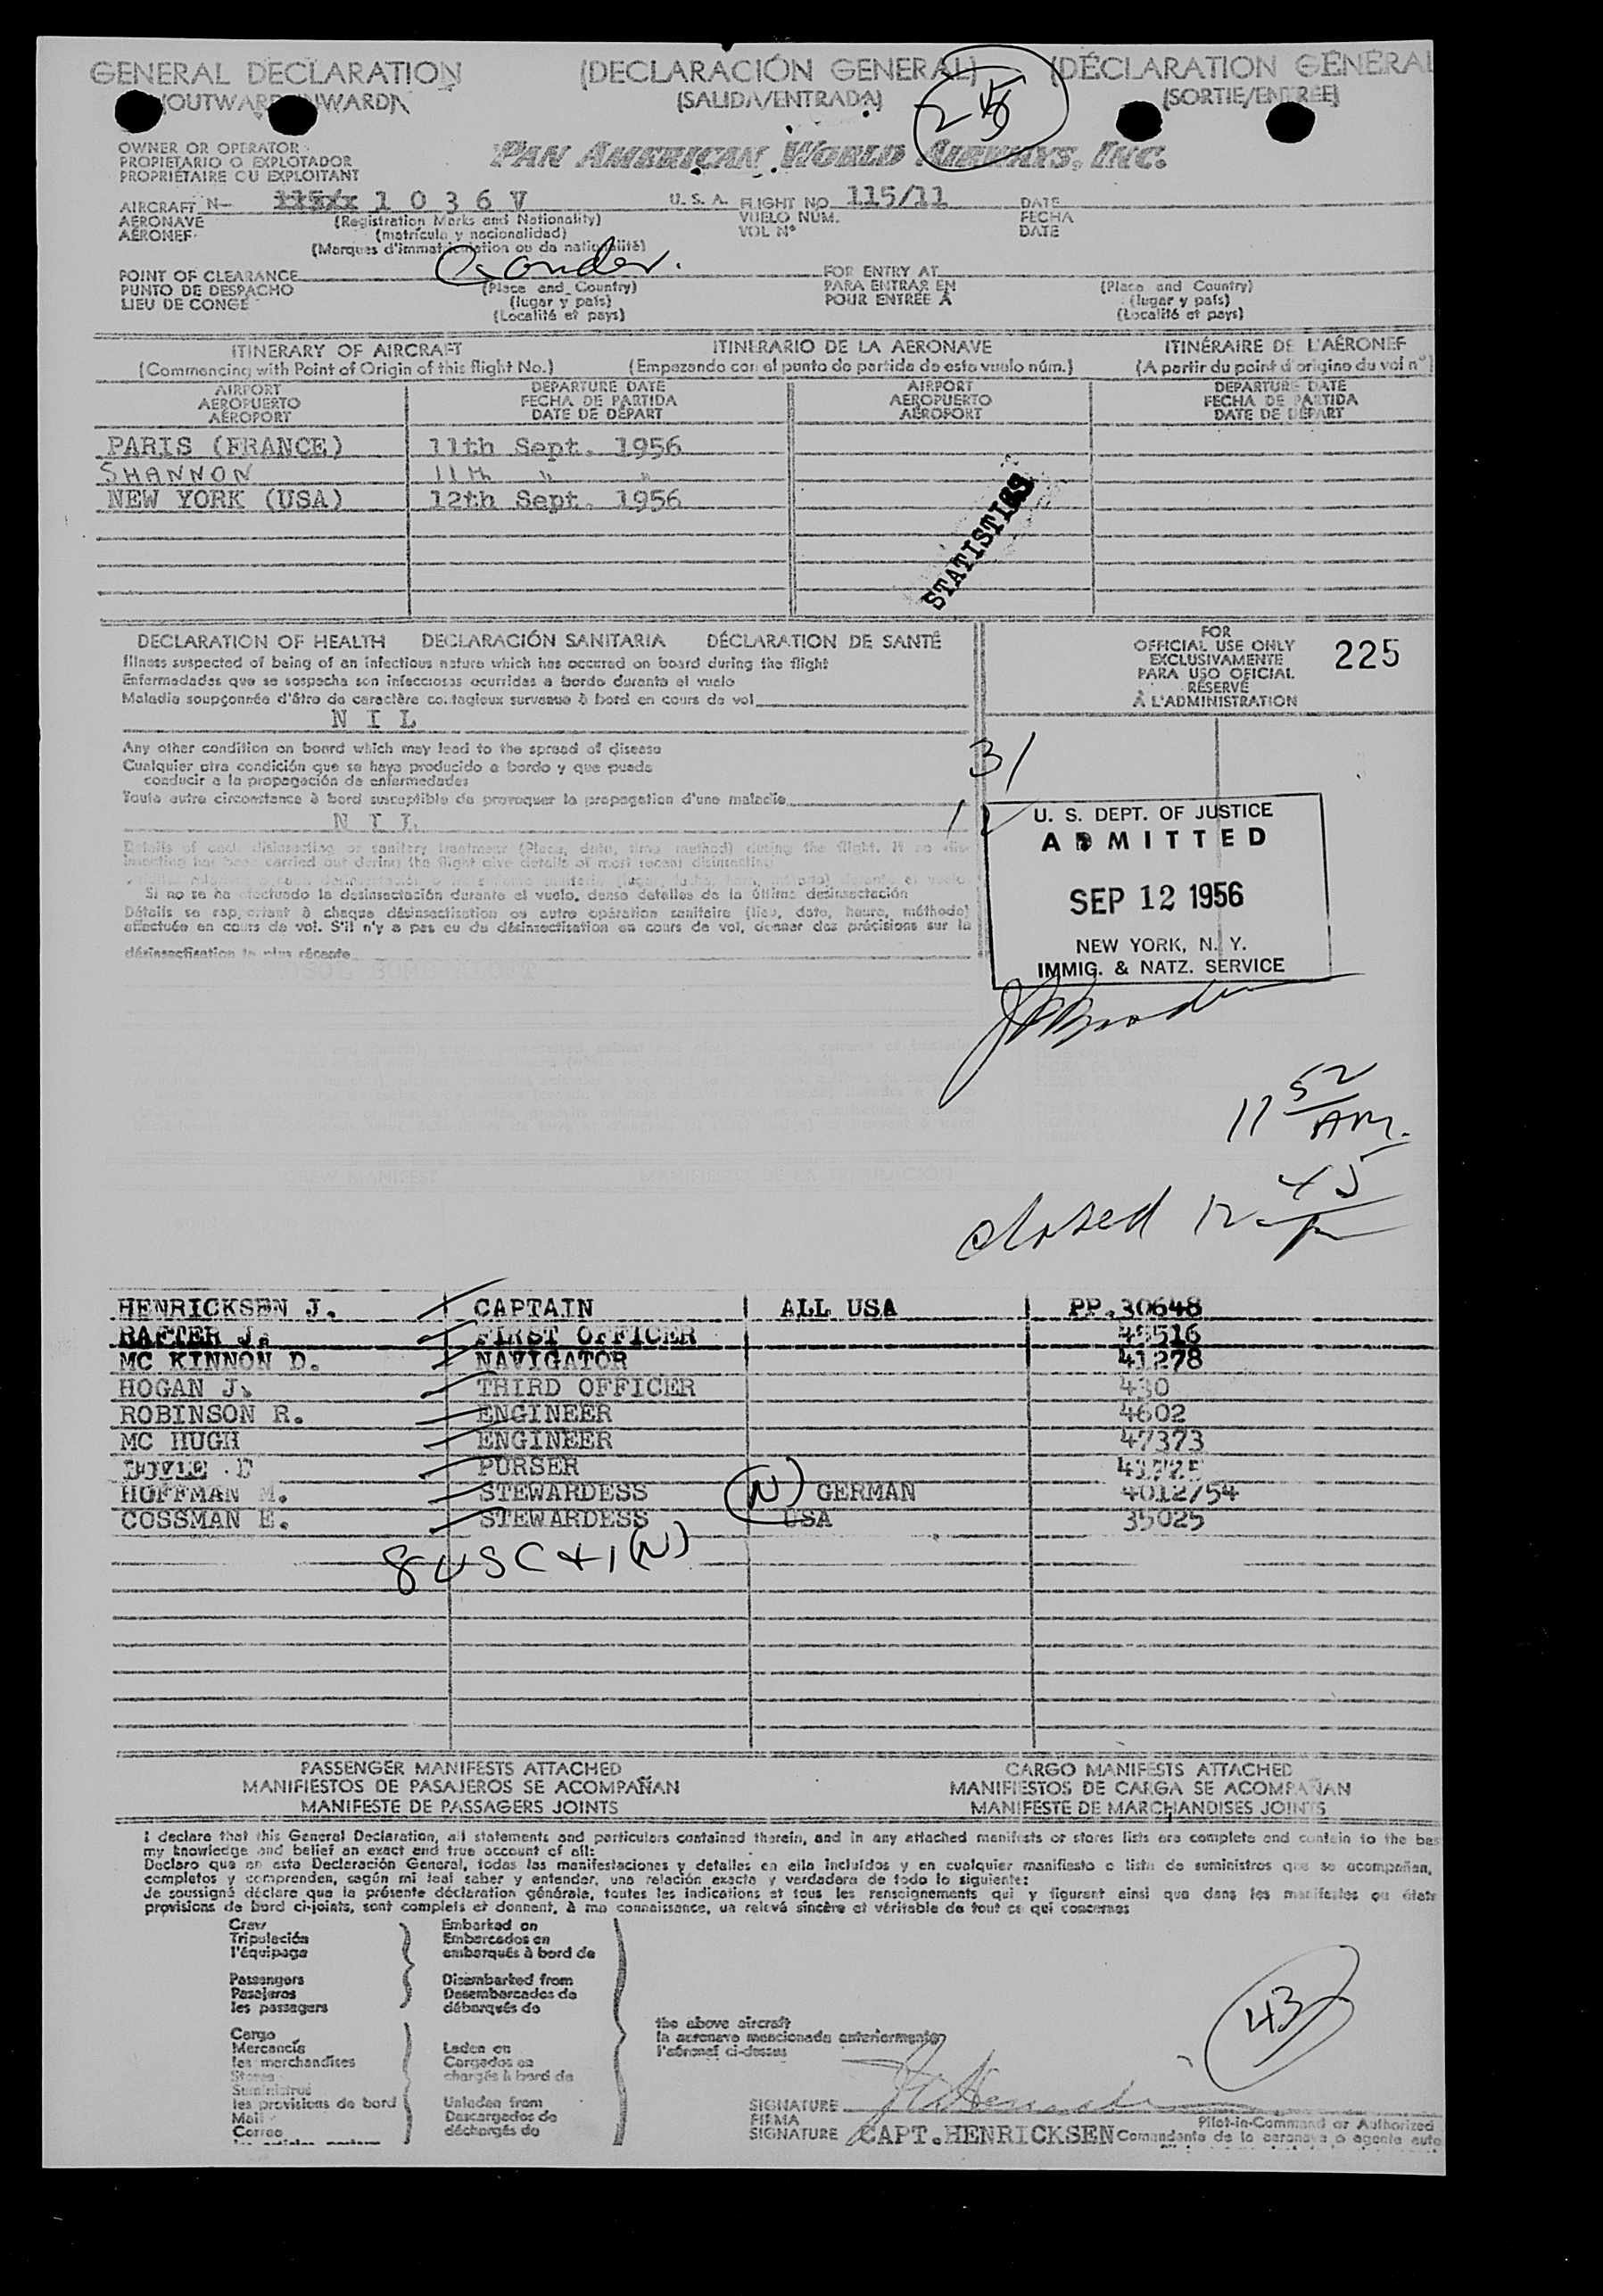 GENERAL DECLARATION (DECLARACIÓN GENERAL) (DÉCLARATION GÉNÉRAL
(OUTWARD INWARD) (SALIDA/ENTRADA) (SORTIE/ENTRÉE)
25
OWNER OR OPERATOR
PROPIETARIO O EXPLOTADOR
PROPRIÉTAIRE OU EXPLOITANT
PAN AMERICAN WORLD AIRWAYS, INC.
AIRCRAFT N- 1 0 3 6 V U. S. A. FLIGHT NO 115/11 DATE
AERONAVE (Registration Marks and Nationality) VUELO NUM. FECHA
AÉRONEF (matrícula y nacionalidad) VOL Nº DATE
(Marques d'immatriculation ou de nationalité)
POINT OF CLEARANCE Gander. FOR ENTRY AT
PUNTO DE DESPACHO (Place and Country) PARA ENTRAR EN (Place and Country)
LIEU DE CONGÉ (lugar y país) POUR ENTRÉE À (lugar y país)
(Localité et pays) (Localité et pays)
ITINERARY OF AIRCRAFT ITINERARIO DE LA AERONAVE ITINÉRAIRE DE L'AÉRONEF
(Commencing with Point of Origin of this flight No.) (Empezando con el punto de partida de este vuelo núm.) (A partir du point d'origine du vol nº)
AIRPORT DEPARTURE DATE AIRPORT DEPARTURE DATE
AEROPUERTO FECHA DE PARTIDA AEROPUERTO FECHA DE PARTIDA
AÉROPORT DATE DE DÉPART AÉROPORT DATE DE DÉPART
PARIS (FRANCE) 11th Sept. 1956
SHANNON 11th " "
NEW YORK (USA) 12th Sept. 1956
STATISTICS
DECLARATION OF HEALTH DECLARACIÓN SANITARIA DÉCLARATION DE SANTÉ
Illness suspected of being of an infectious nature which has occured on board during the flight
Enfermedades que se sospecha son infecciosas ocurridas a bordo durante el vuelo
Maladie soupçonnée d'être de caractère contagieux survenue à bord en cours de vol
N I L
FOR
OFFICIAL USE ONLY
EXCLUSIVAMENTE
PARA USO OFICIAL
RÉSERVÉ
À L'ADMINISTRATION
225
Any other condition on board which may lead to the spread of disease
Cualquier otra condición que se haya producido a bordo y que pueda
conducir a la propagación de enfermedades
Toute autre circonstance à bord susceptible de provoquer la propagation d'une maladie
N I L
31
U. S. DEPT. OF JUSTICE
ADMITTED
SEP 12 1956
NEW YORK, N. Y.
IMMIG. & NATZ. SERVICE
Details of each disinsecting or sanitary treatment (Place, date, time method) during the flight. If no dis-
insecting has been carried out during the flight give details of most recent disinsecting
Si no se ha efectuado la desinsectación durante el vuelo, dense detalles de la última desinsectación
Détails se rapportant à chaque désinsectisation ou autre opération sanitaire (lieu, date, heure, méthode)
effectuée en cours de vol. S'il n'y a pas eu de désinsectisation en cours de vol, donner des précisions sur la
désinsectisation la plus récente
11 52 AM.
closed 12 45 p
HENRICKSEN J. CAPTAIN ALL USA PP.30648
RAFTER J. FIRST OFFICER 45516
MC KINNON D. NAVIGATOR 41278
HOGAN J. THIRD OFFICER 430
ROBINSON R. ENGINEER 4602
MC HUGH ENGINEER 47373
DOYLE D PURSER
HOFFMAN M. STEWARDESS (N) GERMAN 4012/54
COSSMAN E. STEWARDESS USA 35025
8 USC + 1 (N)
PASSENGER MANIFESTS ATTACHED CARGO MANIFESTS ATTACHED
MANIFIESTOS DE PASAJEROS SE ACOMPAÑAN MANIFIESTOS DE CARGA SE ACOMPAÑAN
MANIFESTE DE PASSAGERS JOINTS MANIFESTE DE MARCHANDISES JOINTS
I declare that this General Declaration, all statements and particulars contained therein, and in any attached manifests or stores lists are complete and contain to the bes
my knowledge and belief an exact and true account of all:
Declaro que en esta Declaración General, todas las manifestaciones y detalles en ella incluídos y en cualquier manifiesto o lista de suministros que se acompañan,
completos y comprenden, según mi leal saber y entender, una relación exacta y verdadera de todo lo siguiente:
Je soussigné déclare que la présente déclaration générale, toutes les indications et tous les renseignements qui y figurent ainsi que dans les manifestes ou états
provisions de bord ci-joints, sont complets et donnent, à ma connaissance, un relevé sincère et véritable de tout ce qui concernes
Crew Embarked on
Tripulación Embarcados en
l'équipage embarqués à bord de
Passengers Disembarked from
Pasajeros Desembarcados de
les passagers débarqués de
Cargo
Mercancía Laden on
les marchandises Cargados en
Stores chargés à bord de
Suministros
les provisions de bord Unladen from
Mail Descargados de
Correo déchargés de
the above aircraft
la aeronave mencionada anteriormente
l'aéronef ci-dessus
43
SIGNATURE
FIRMA Pilot-in-Command or Authorized
SIGNATURE CAPT.HENRICKSEN Comandante de la aeronave o agente auto